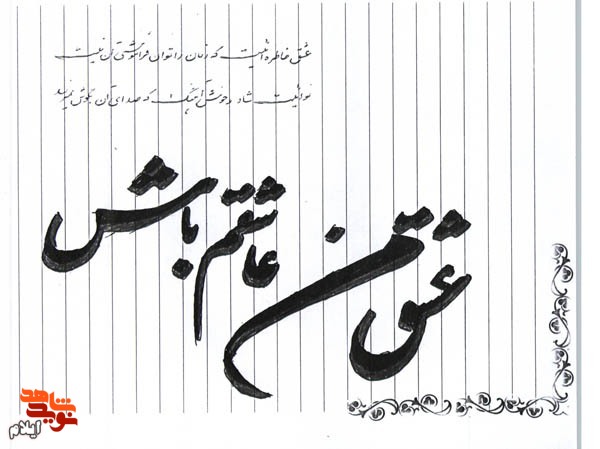 عشق خاطره ائیست که زمان را توان فراموشی آن نیست
نوائیست شاد و خوش آهنگ که صدای آن بگوش نمیرسد
عشق من عاشقم باش
نوید شاهد
ایلام